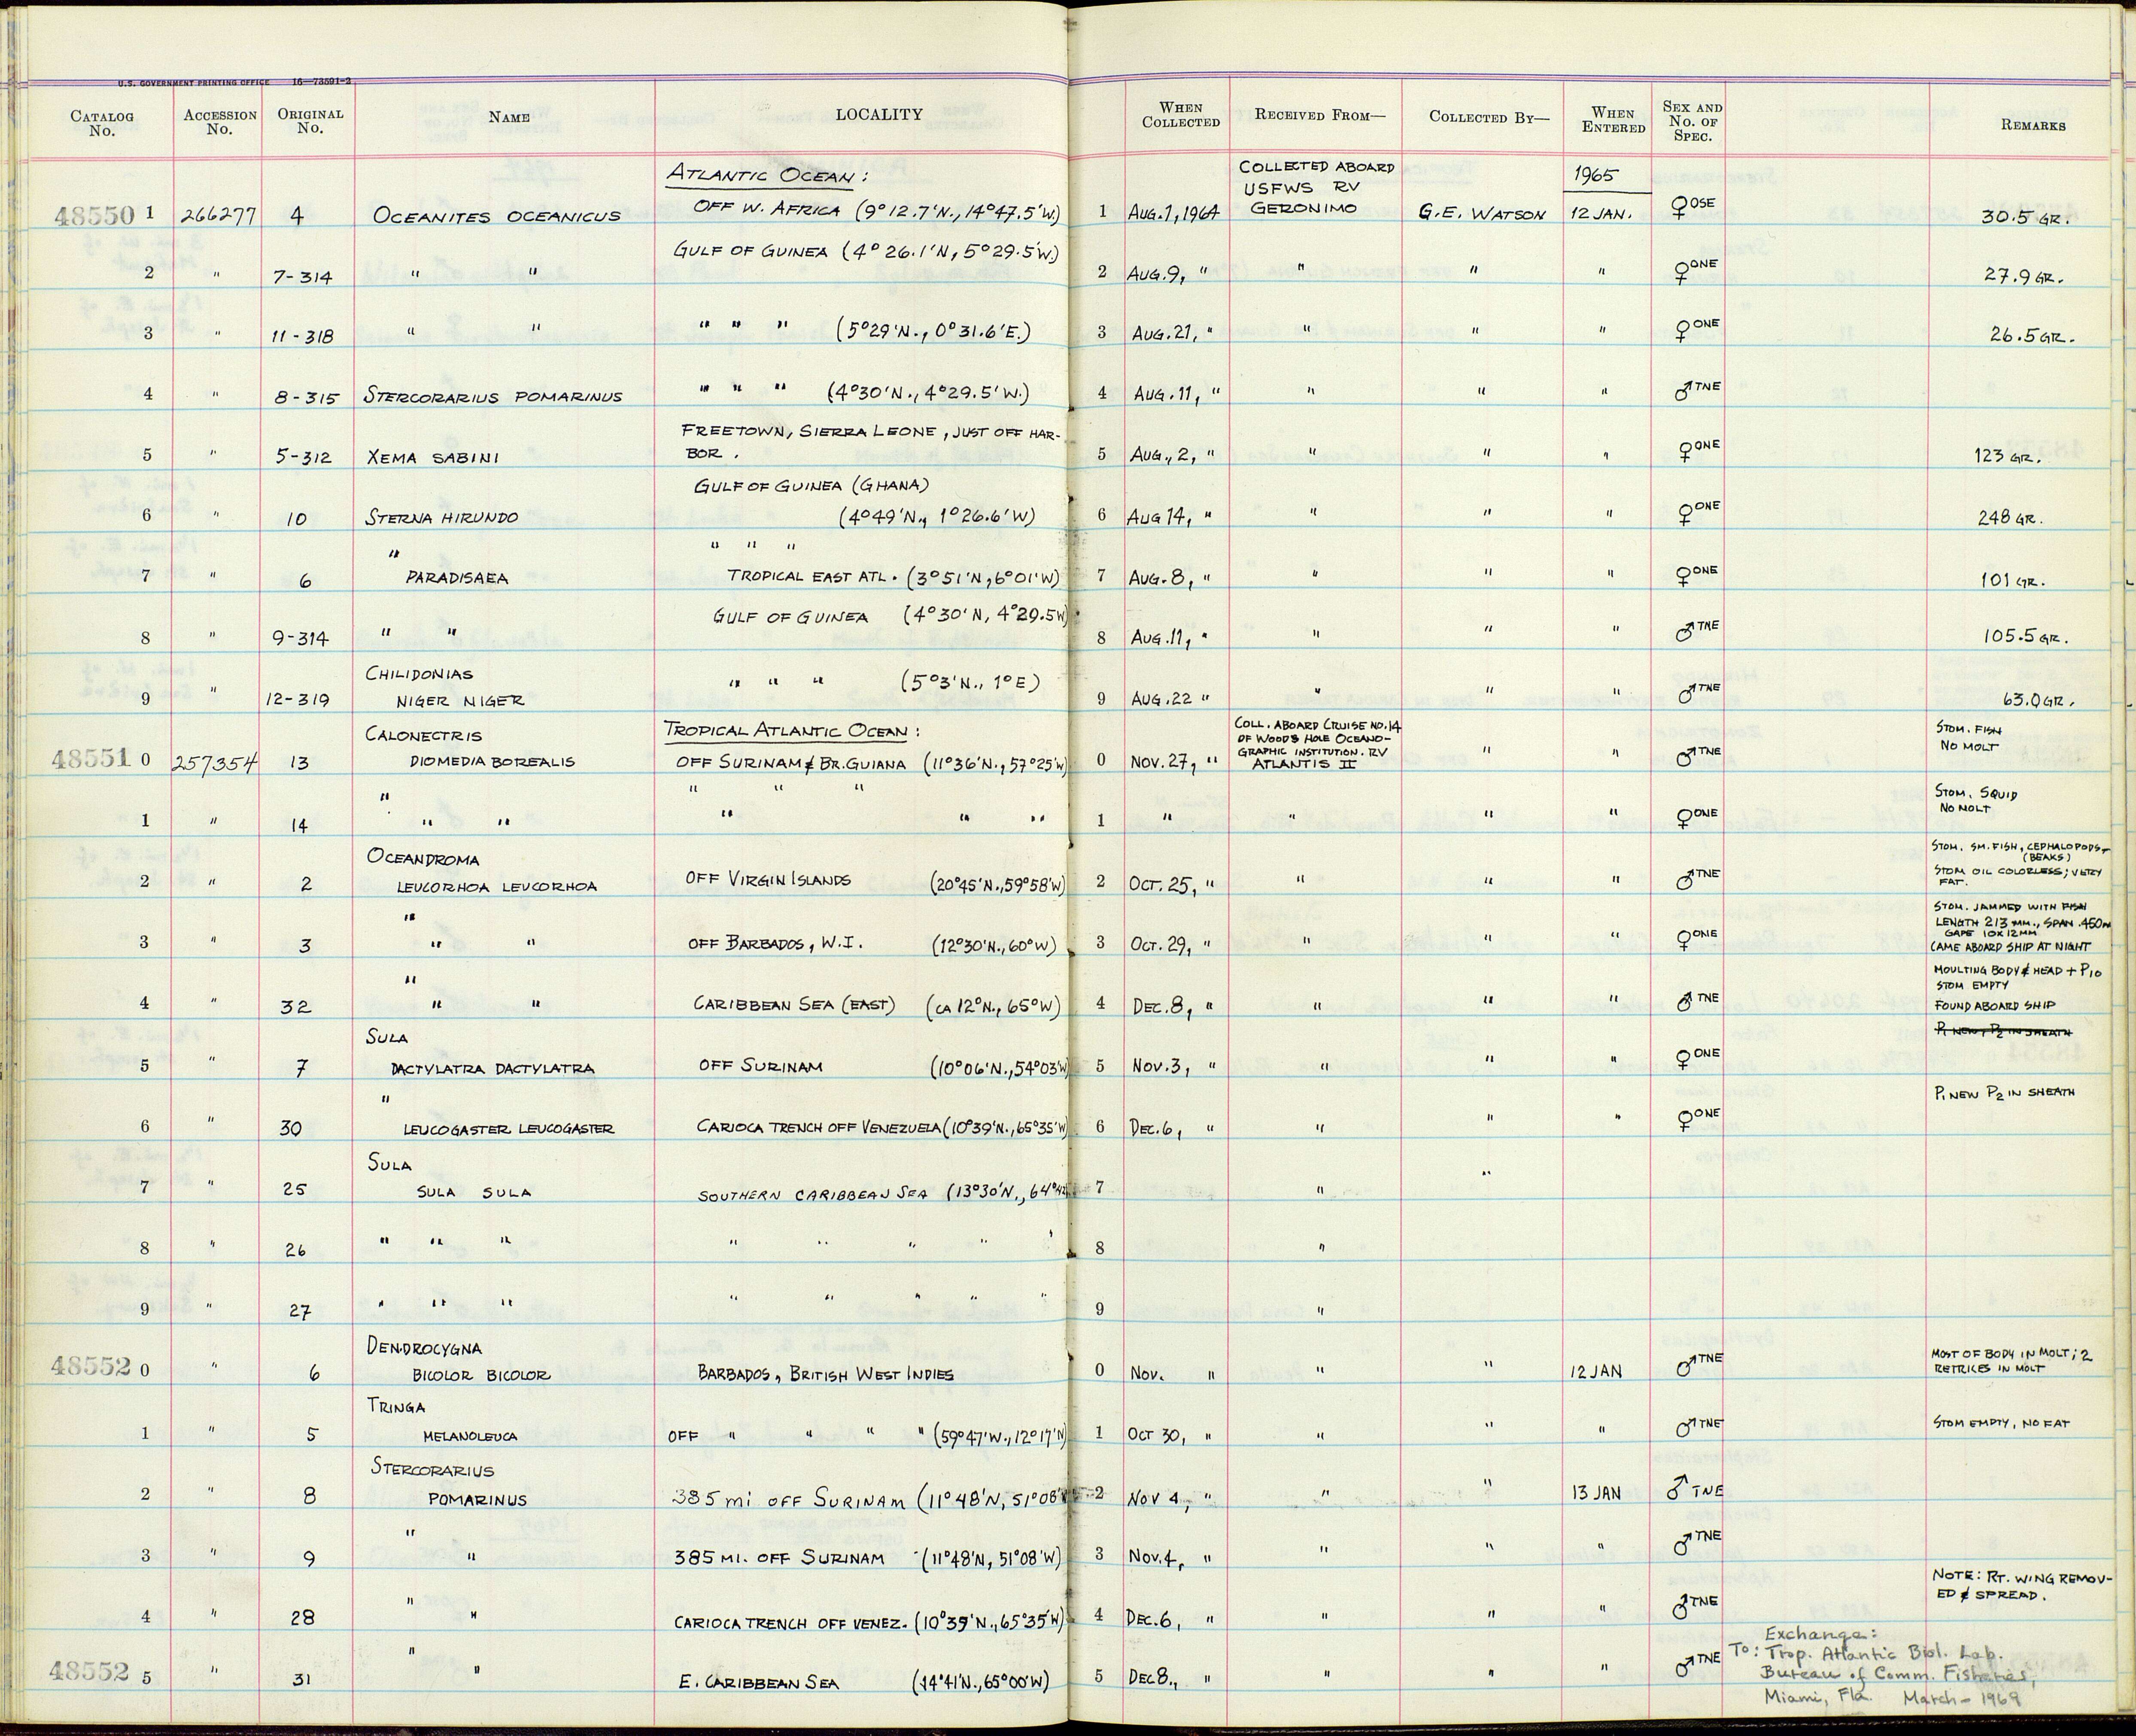 U.S. GOVERNMENT PRINTING OFFICE 16—73591-2
CATALOG No. ACCESSION No. ORIGINAL No. NAME LOCALITY WHEN COLLECTED RECEIVED FROM— COLLECTED BY— WHEN ENTERED SEX AND No. OF SPEC. REMARKS
ATLANTIC OCEAN: COLLECTED ABOARD 1965
USFWS RV
48550 1 266277 4 OCEANITES OCEANICUS OFF W. AFRICA (9°12.7'N., 14°47.5'W.) 1 AUG. 1, 1964 GERONIMO G.E. WATSON 12 JAN. ♀ OSE 30.5 GR.
GULF OF GUINEA (4°26.1'N, 5°29.5'W.)
2 " 7-314 " " 2 AUG. 9, " " " " ♀ ONE 27.9 GR.
3 " 11-318 " " " " " (5°29'N., 0°31.6'E.) 3 AUG. 21, " " " " ♀ ONE 26.5 GR.
4 " 8-315 STERCORARIUS POMARINUS " " " (4°30'N., 4°29.5'W.) 4 AUG. 11, " " " " ♂ TNE
FREETOWN, SIERRA LEONE, JUST OFF HAR-
5 " 5-312 XEMA SABINI BOR. 5 AUG., 2, " " " " ♀ ONE 123 GR.
GULF OF GUINEA (GHANA)
6 " 10 STERNA HIRUNDO (4°49'N., 1°26.6'W) 6 AUG 14, " " " " ♀ ONE 248 GR.
" " " "
7 " 6 PARADISAEA TROPICAL EAST ATL. (3°51'N, 6°01'W) 7 AUG. 8, " " " " ♀ ONE 101 GR.
GULF OF GUINEA (4°30'N, 4°29.5W)
8 " 9-314 " " 8 AUG. 11, " " " " ♂ TNE 105.5 GR.
CHILIDONIAS " " " (5°3'N., 1°E)
9 " 12-319 NIGER NIGER 9 AUG. 22 " " " " ♂ TNE 63.0 GR.
CALONECTRIS TROPICAL ATLANTIC OCEAN: COLL. ABOARD CRUISE NO. 14 STOM. FISH
OF WOODS HOLE OCEANO- NO MOLT
GRAPHIC INSTITUTION. RV
48551 0 257354 13 DIOMEDIA BOREALIS OFF SURINAM & BR. GUIANA (11°36'N., 57°25'W) 0 NOV. 27, " ATLANTIS II " " ♂ TNE
" " " " STOM. SQUID
NO MOLT
1 " 14 " " " " " 1 " " " " ♀ ONE
OCEANDROMA STOM. SM. FISH, CEPHALOPODS-
(BEAKS)
2 " 2 LEUCORHOA LEUCORHOA OFF VIRGIN ISLANDS (20°45'N., 59°58'W) 2 OCT. 25, " " " " ♂ TNE STOM OIL COLORLESS; VERY
FAT.
" STOM. JAMMED WITH FISH
LENGTH 213 MM., SPAN .450M
GAPE 10X12MM
3 " 3 " " OFF BARBADOS, W.I. (12°30'N., 60°W) 3 OCT. 29, " " " " ♀ ONE CAME ABOARD SHIP AT NIGHT
" MOULTING BODY & HEAD + P10
STOM EMPTY
4 " 32 " " CARIBBEAN SEA (EAST) (CA 12°N., 65°W) 4 DEC. 8, " " " " ♂ TNE FOUND ABOARD SHIP
SULA P1 NEW, P2 IN SHEATH
5 " 7 DACTYLATRA DACTYLATRA OFF SURINAM (10°06'N., 54°03'W 5 NOV. 3, " " " " ♀ ONE
" P1 NEW P2 IN SHEATH
6 " 30 LEUCOGASTER LEUCOGASTER CARIOCA TRENCH OFF VENEZUELA (10°39'N., 65°35'W) 6 DEC. 6, " " " " ♀ ONE
SULA
7 " 25 SULA SULA SOUTHERN CARIBBEAN SEA (13°30'N., 64°42 7 " "
8 " 26 " " " " " " " " 8 "
9 " 27 " " " " " " " " 9 "
DENDROCYGNA MOST OF BODY IN MOLT; 2
48552 0 " 6 BICOLOR BICOLOR BARBADOS, BRITISH WEST INDIES 0 NOV. " " " 12 JAN ♂ TNE RETRICES IN MOLT
TRINGA
1 " 5 MELANOLEUCA OFF " " " " (59°47'W., 12°17'N) 1 OCT 30, " " " " ♂ TNE STOM EMPTY, NO FAT
STERCORARIUS
2 " 8 POMARINUS 385 mi OFF SURINAM (11°48'N, 51°08' 2 NOV 4, " " " 13 JAN ♂ TNE
"
3 " 9 " 385 MI. OFF SURINAM (11°48'N, 51°08'W) 3 NOV. 4, " " " " ♂ TNE
" NOTE: RT. WING REMOV-
ED & SPREAD.
4 " 28 " CARIOCA TRENCH OFF VENEZ. (10°39'N., 65°35'W) 4 DEC. 6, " " " " ♂ TNE
" Exchange:
To: Trop. Atlantic Biol. Lab.
48552 5 " 31 " E. CARIBBEAN SEA (14°41'N., 65°00'W) 5 DEC 8., " " " " ♂ TNE Bureau of Comm. Fisheries,
Miami, Fla. March – 1969